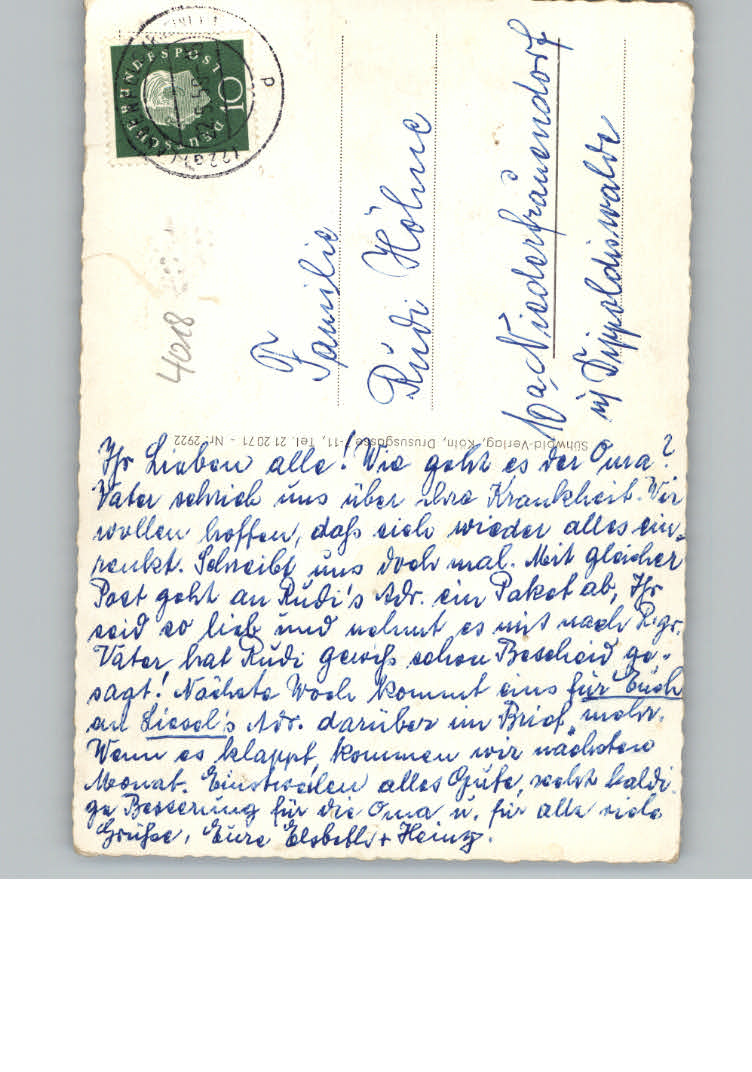 DEUTSCHE BUNDESPOST
10
Familie
Rudi Höhne
10a, Niederfrauendorf
üb Dippoldiswalde
4018
Sühwold-Verlag, Köln, Drususgasse 7-11, Tel. 21 20 71 - Nr. 2922
Ihr Lieben alle! Wie geht es der Oma?
Vater schrieb uns über ihre Krankheit. Wir
wollen hoffen, daß sich wieder alles ein-
renkt. Schreibt uns doch mal. Mit gleicher
Post geht an Rudi's Adr. ein Paket ab, Ihr
seid so lieb und nehmt es mit nach Rgr.
Vater hat Rudi gewiß schon Bescheid ge-
sagt! Nächste Woch kommt eins für Euch
an Liesel's Adr. darüber im Brief mehr.
Wenn es klappt, kommen wir nächsten
Monat. Einstweilen alles Gute, recht baldi-
ge Besserung für die Oma u. für alle viele
Grüße, Eure Elsbeth + Heinz.